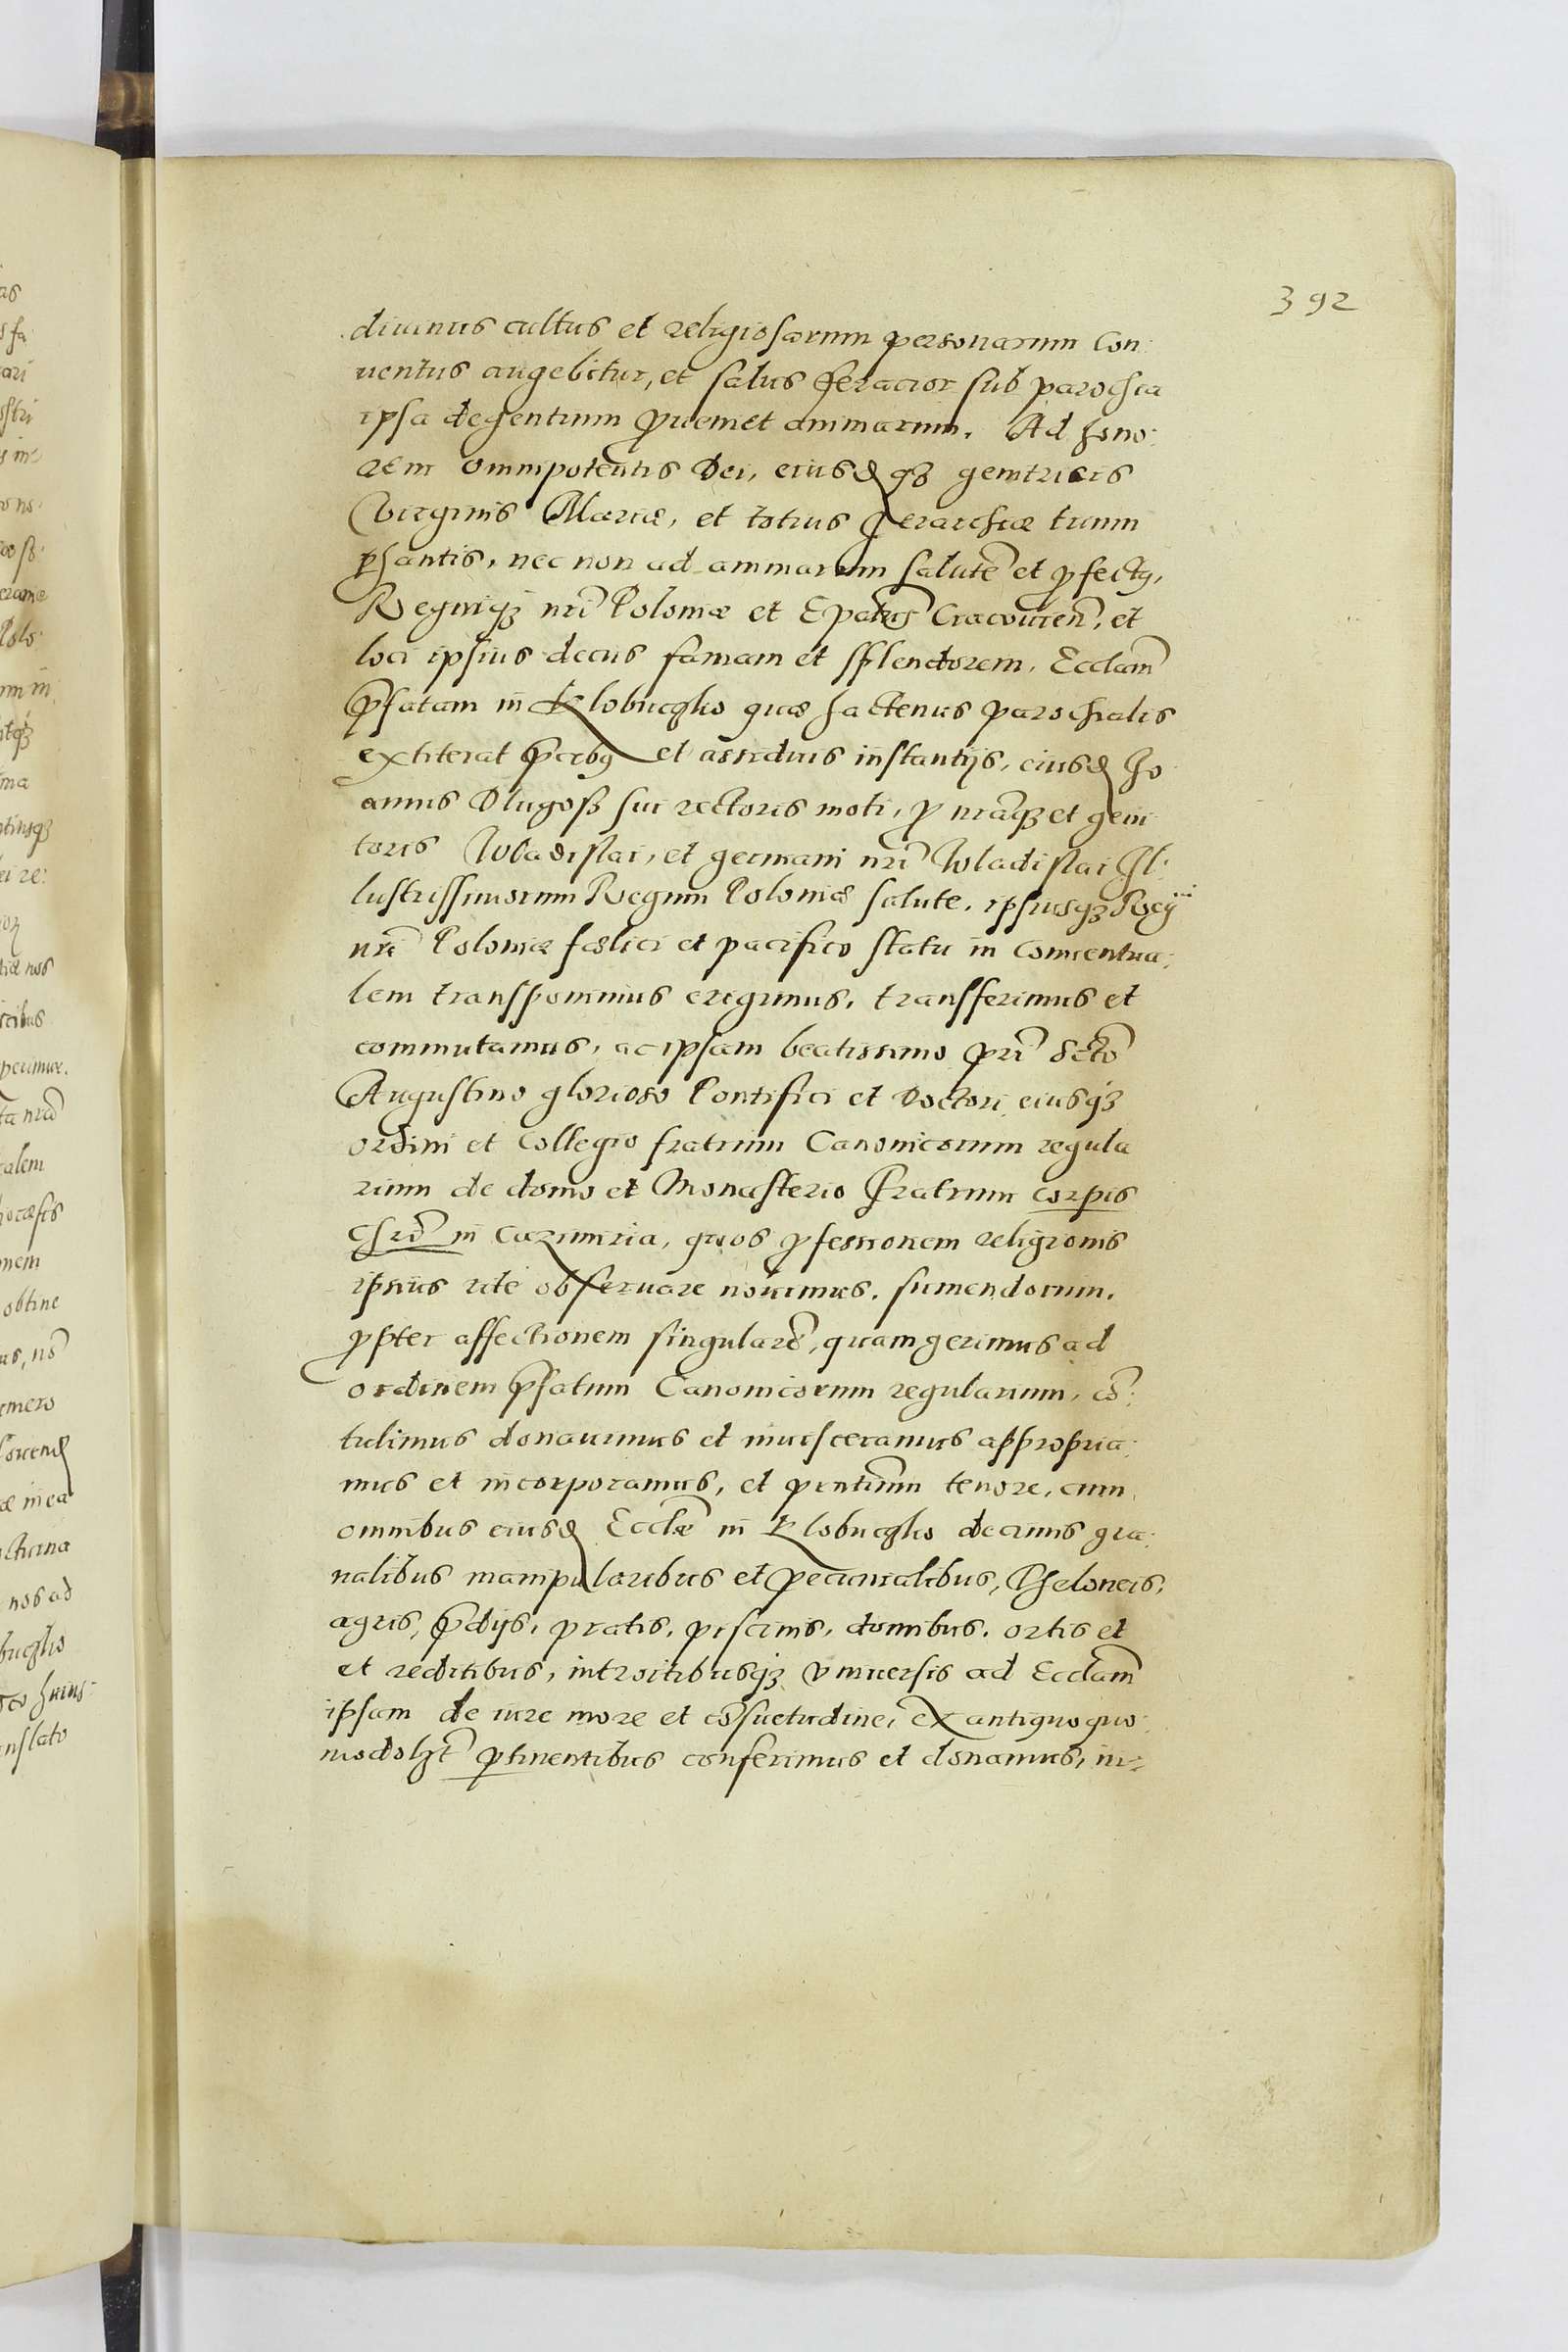 392
diuinus cultus et religiosarum personarum Con:
uentus augebitur, et salus feracior sub parochia
ipsa degentium ꝓueniet animarum. Ad hono:
rem omnipotentis Dei, eiusdꝫ genitricis
Virginis Mariæ, et totius Jerarchiæ trium
phantis, nec non ad animarum salutē et ꝓfectꝰ,
Regniqꝫ nrī Poloniæ et Epatus Cracouien̄, et
loci ipsius decus famam et splendorem, Ecclam̄
p̄fatam in Klobuczko quæ hactenus parochialis
extiterat p̄cibꝰ et assiduis instantijs, eiusd Jo
annis Dlugosz sui rectoris moti, ꝓ nr̄aqꝫ et geni
toris Wladislai, et germani nrī Wladislai Il:
lustrissimorum Regum Poloniæ salute, ipsiusqꝫ Regni
nrī Poloniæ fœlici et pacifico statu in conuentua:
lem transponimus erigimus, transferimus et
commutamus, ac ipsam beatissimo pr̄i Sctō
Augustino glorioso Pontifici et Doctori, eiusqꝫ
ordini et Collegio fratrum Canonicorum regula
rium de domo et Monasterio Fratrum corpis
chrī in Cazimiria, quos ꝓfessionem religionis
ipsius rite obseruare nouimus, sumendorum,
ꝓpter affectionem singularē, quam gerimus ad
ordinem p̄fatum Canonicorum regularium, cō:
tulimus donauimus et inuisceramus appropria:
mus et incorporamus, et p̄ntium̄ tenore, cum
omnibus eiusd Ecclǣ in Klobuczko decimis gra:
nalibus manipularibus et pecunialibus, Theloneis,
agris, p̄dijs, pratis, piscinis, domibus, ortis et
et reditibus, introitibusqꝫ vniuersis ad Ecclam̄
ipsam de iure more et cōsuetudine, ex antiquo quo
modolꝫt ꝑtinentibus conferimus et donamus, in=